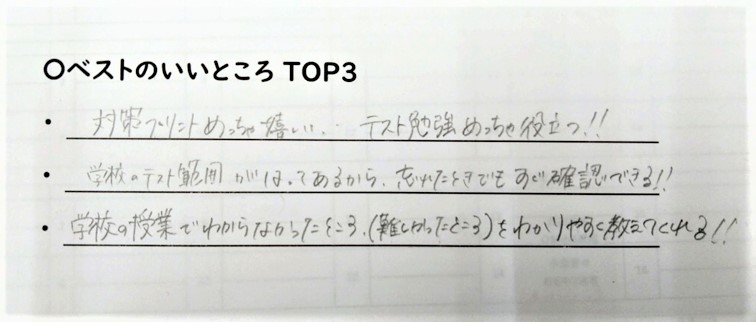 〇ベストのいいところ TOP3
・対策プリントめっちゃ嬉しい。 テスト勉強めっちゃ役立つ!!
・学校のテスト範囲がはってあるから、忘れたときでもすぐ確認できる!!
・学校の授業でわからなかったところ、(難しかったところ)をわかりやすく教えてくれる!!